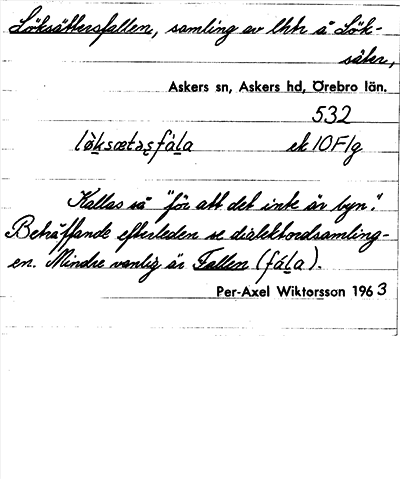 Löksättersfallen, samling av lhtr å Lök-
säter,
Askers sn, Askers hd, Örebro län.
532
ek 10F1g
Kallas så "för att det inte är byn".
Beträffande efterleden se dialektordsamling-
en. Mindre vanlig är Fallen (fála).
Per-Axel Wiktorsson 1963